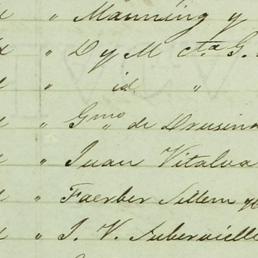 " Manning y
" D y M cta G.
" id "
" Gmo de Drusina
" Juan Vitalva
" Faerber Sillem y
" J. V. Subervielle